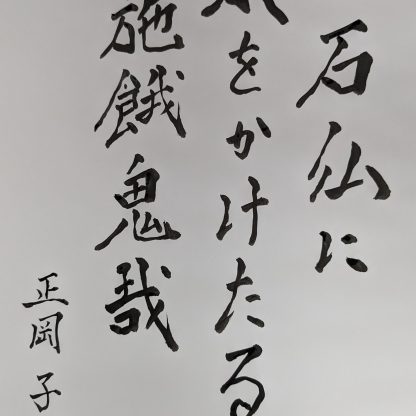 石仏に
をかけたる
砲餓鬼哉
正岡子